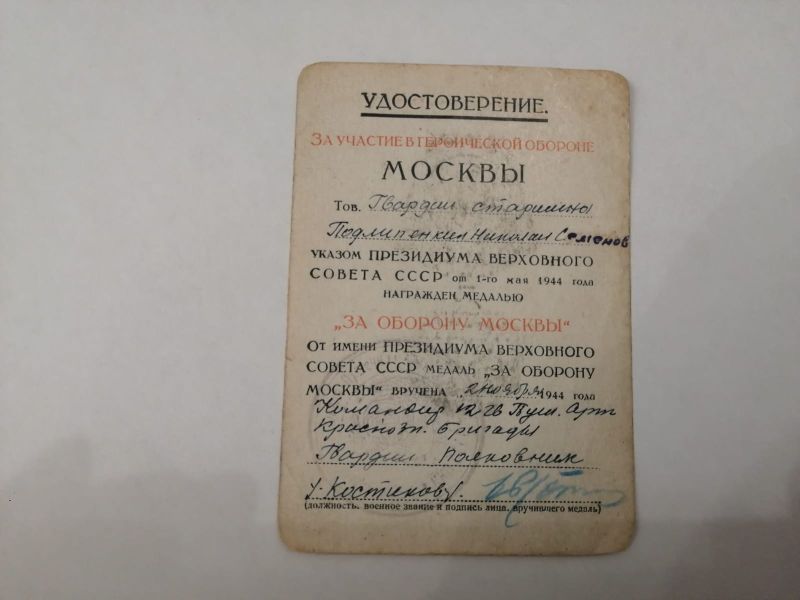 УДОСТОВЕРЕНИЕ.
ЗА УЧАСТИЕ В ГЕРОИЧЕСКОЙ ОБОРОНЕ
МОСКВЫ
Тов. Гвардии старшина
Подлипенкин Николай Семенов
УКАЗОМ ПРЕЗИДИУМА ВЕРХОВНОГО
СОВЕТА СССР от 1-го мая 1944 года
НАГРАЖДЕН МЕДАЛЬЮ
„ЗА ОБОРОНУ МОСКВЫ“
От имени ПРЕЗИДИУМА ВЕРХОВНОГО
СОВЕТА СССР МЕДАЛЬ „ЗА ОБОРОНУ
МОСКВЫ“ ВРУЧЕНА 2 ноября 1944 года
Командир 12 Гв Пуш. Арт
Краснозн. Бригады
Гвардии Полковник
/-Костиков/.
(должность, военное звание и подпись лица, вручившего медаль)